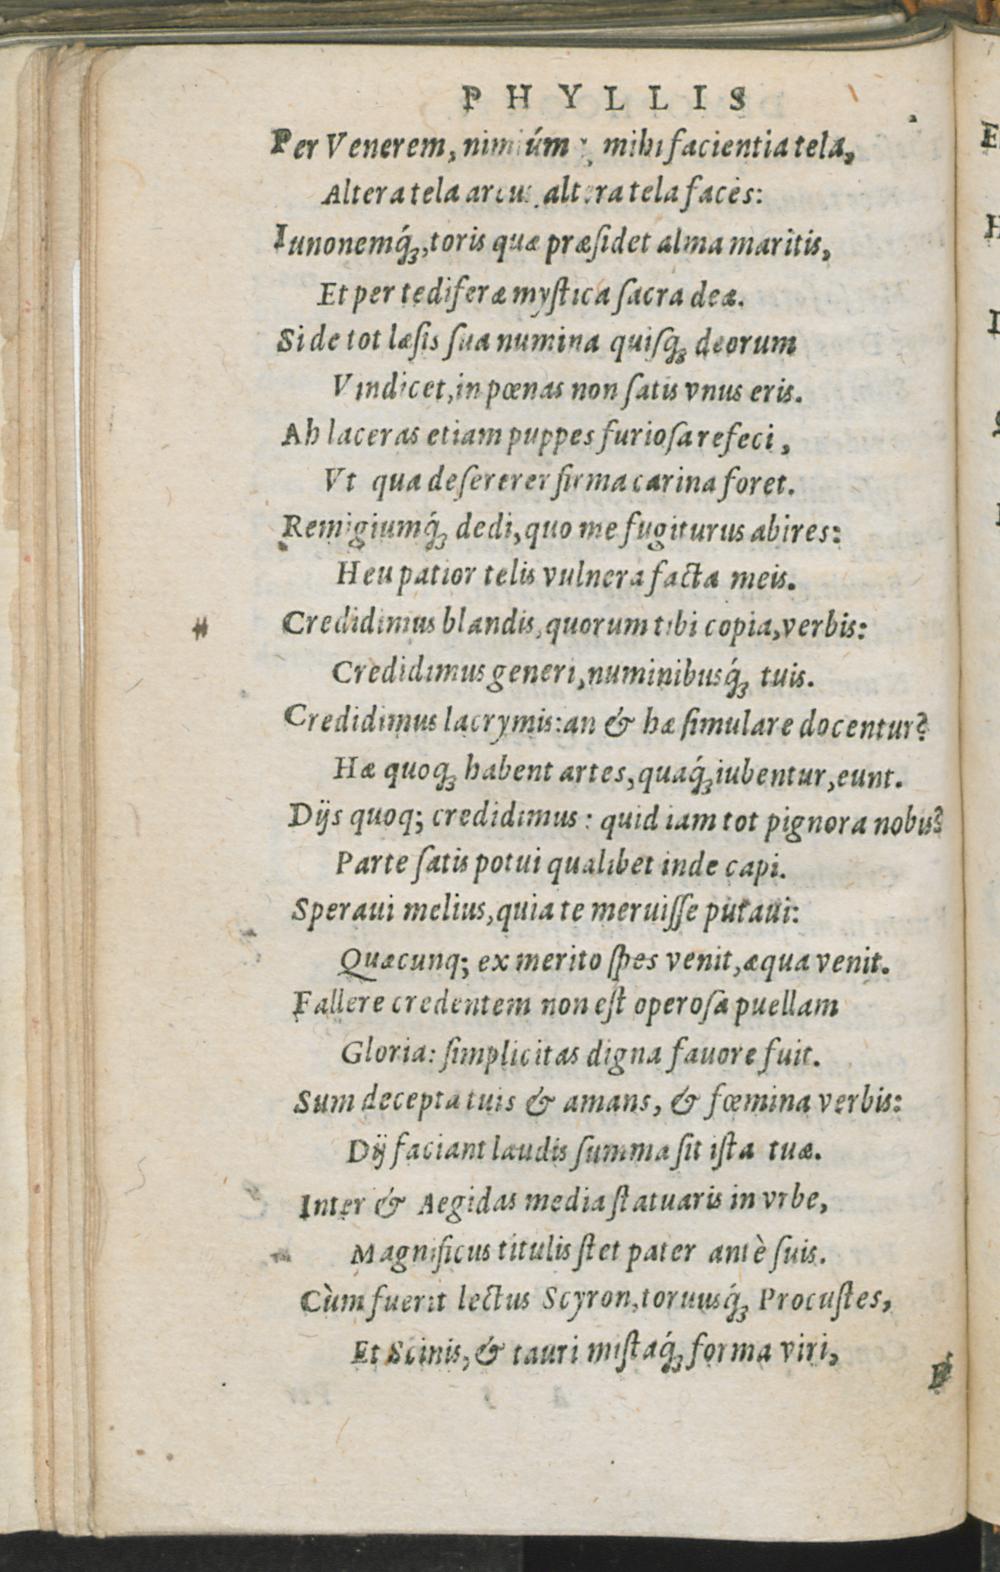 PHYLLIS
Per Venerem, nimiúmq; mihi facientia tela,
Altera tela arcus, altera tela faces:
Iunonemq́ꝫ, toris quæ præſidet alma maritis,
Et per tediferæ myſtica ſacra deæ.
Si de tot læſis ſua numina quiſqꝫ deorum
Vindicet, in pœnas non ſatis vnus eris.
Ah laceras etiam puppes furioſa refeci,
Vt qua deſererer firma carina foret.
Remigiumq́ꝫ dedi, quo me fugiturus abires:
Heu patior telis vulnera facta meis.
Credidimus blandis, quorum tibi copia, verbis:
Credidimus generi, numinibusq́ꝫ tuis.
Credidimus lacrymis: an & hæ ſimulare docentur?
Hæ quoqꝫ habent artes, quaq́ꝫ iubentur, eunt.
Dijs quoq; credidimus: quid iam tot pignora nobis?
Parte ſatis potui qualibet inde capi.
Speraui melius, quia te meruiſſe putaui:
Quæcunq; ex merito ſpes venit, æqua venit.
Fallere credentem non eſt operoſa puellam
Gloria: ſimplicitas digna fauore fuit.
Sum decepta tuis & amans, & fœmina verbis:
Dij faciant laudis ſumma ſit iſta tuæ.
Inter & Aegidas media ſtatuaris in vrbe,
Magnificus titulis ſtet pater antè ſuis.
Cùm fuerit lectus Scyron, toruusq́ꝫ Procuſtes,
Et Scinis, & tauri miſtaq́ꝫ forma viri,